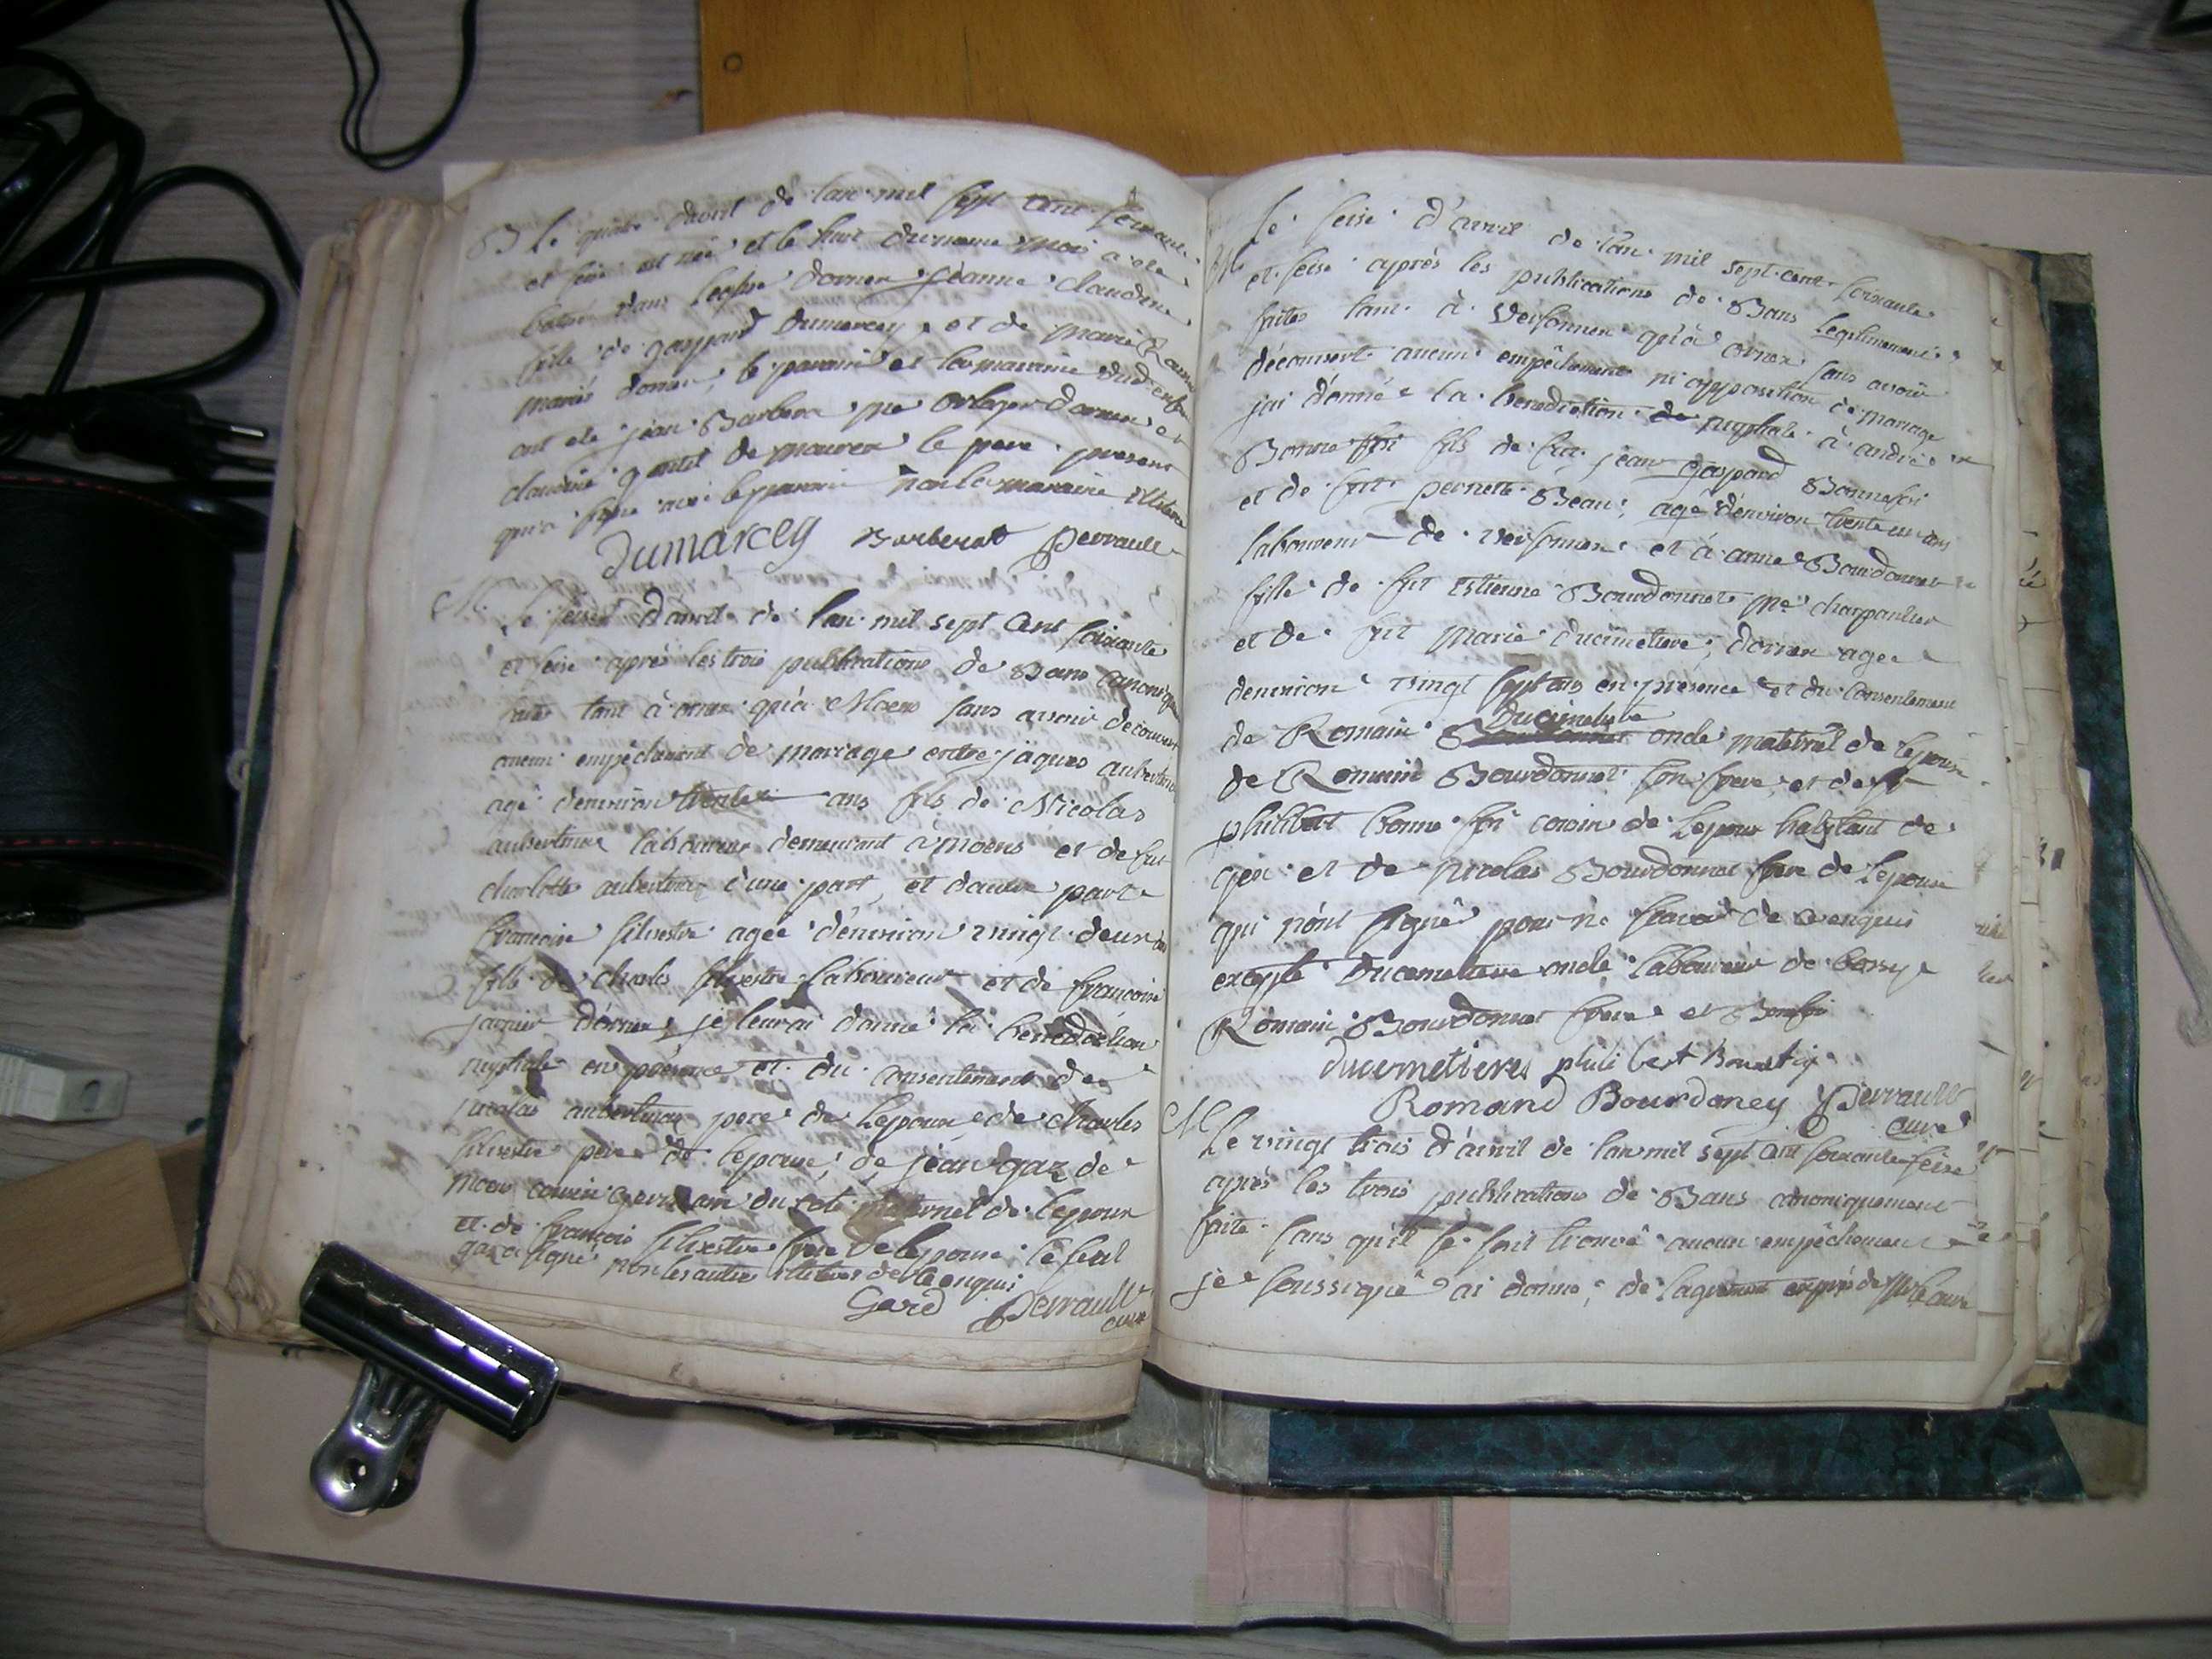 B Le quatre davril de lan mil sept cent soixante
et seise est née et le huit du meme mois a ete
batisé dans leglise dornex jèanne claudine
fille de gaspard dumarcey et de marie
mariés dornex, le parrain et la marraine dud enfant
ont ete jean Barberat me orloger dornex et
claudine gentil de mourex le pere present
qui a signé avec le parrain non la marraine illitere
Dumarcey Barberat perrault
M. Le seise d'avril de lan mil sept cent soixante
et seise après les trois publications de Bans canonique
faites tant à ornex qu'à Moens sans avoir decouvert
aucun empêchement de mariage entre jaques
agé denviron ans fils de Nicolas
laboureur demeurant à moens et de fut
charlotte d'une part, et d'autre parte
francoise silvestre agée d'environ vingt deux ans
fille de charles silvestre laboureur et de francoise
dornex, je leur ai donné la bénédiction
nuptiale en présence et du consentement de
nicolas père de lepoux de charles
silvestre père de lepouse, de jean gaz de
moens cousin germain du coté maternel de lepoux
et de francois silvestre frere de lepouse le seul
gaz a signé non les autres illiteres de ce enquis
Gard perrault
curé
M Le seise d'avril de lan mil sept cent soixante
et seise après les publications de Bans legitimement
faites tant à Versonnex qu'à ornex sans avoir
découvert aucun empêchement ni opposition de mariage
jai donné la benediction de nuptiale à andré
Bonnefoi fils de fut jean gaspard Bonnefoi
et de fut pernette Beau, agé d'environ trente un ans
laboureur de versonnex et à anne Bourdonnet
fille de fut Estienne Bourdonnet me charpentier
et de fut marie ducimetiere, dornex agee
denviron vingt sept ans en présence et du consentement
ducimetiere
de Romain Bourdonnet oncle maternel de lepouse
de Romain Bourdonnet son frere, et de
philibert bonne foi cousin de lepoux habitant de
gex et de nicolas Bourdonnet frere de lepouse
qui n'ont signé pour ne scavoir de ce enquis
excepté Ducemetiere oncle laboureur de
Romain Bourdonnet frere et Bonfoi
ducemetieres phili bert
Romand Bourdoney perrault
curé
M Le vingt trois d'avril de lan mil sept cent soixante seise
après les trois publications de Bans canoniquement
faite sans qu'il se soit trouvé aucun empêchement
je soussigné ai donné, de lagrement exprés de